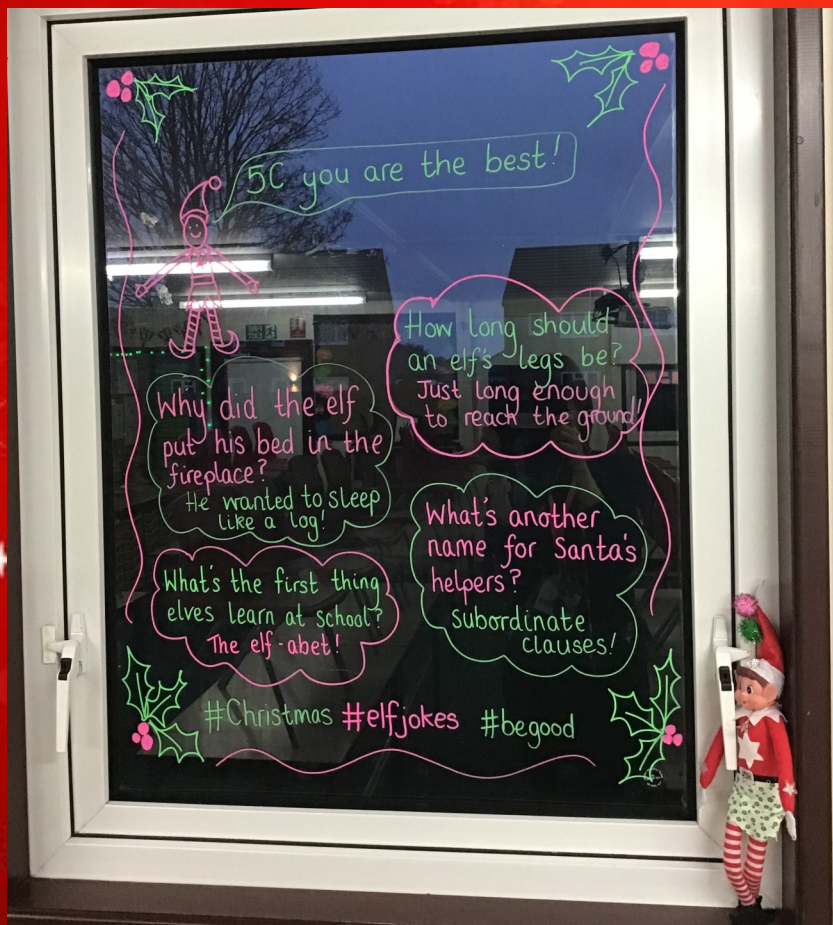 5C you are the best!
How long should
an elf's legs be?
Just long enough
to reach the ground!
Why did the elf
put his bed in the
fireplace?
He wanted to sleep
like a log!
What's another
name for Santa's
helpers?
subordinate
clauses!
What's the first thing
elves learn at school?
The elf-abet!
#Christmas #elfjokes #begood